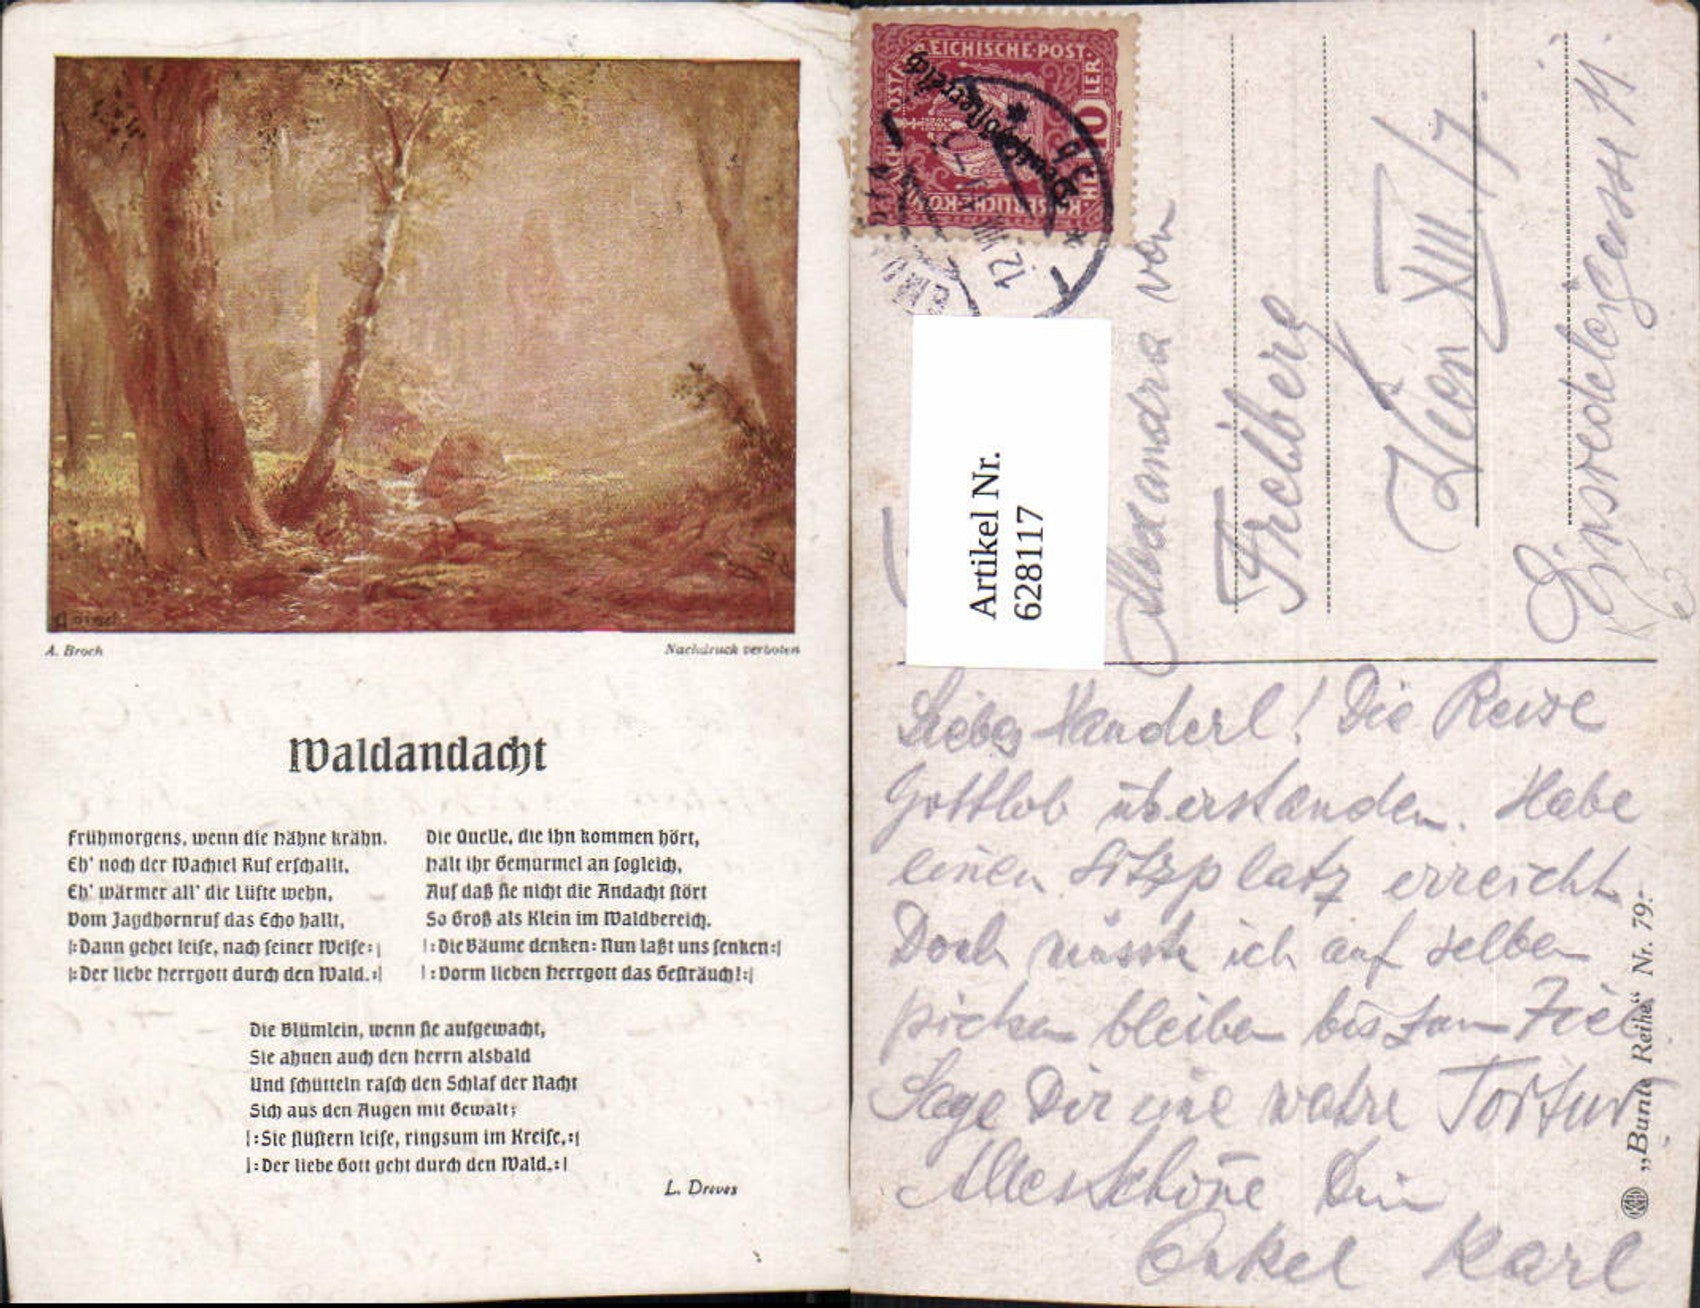 A. Broch
Nachdruck verboten
Waldandacht
Frühmorgens, wenn die Hähne krähn.
Eh' noch der Wachtel Ruf erschallt,
Eh' wärmer all' die Lüfte wehn,
Vom Jagdhornruf das Echo hallt,
|:Dann gehet leise, nach seiner Weise:|
|:Der liebe Herrgott durch den Wald.:|
Die Quelle, die ihn kommen hört,
Hält ihr Gemurmel an sogleich,
Auf daß sie nicht die Andacht stört
So Groß als Klein im Waldbereich.
|:Die Bäume denken: Nun laßt uns senken:|
|:Vorm lieben Herrgott das Gesträuch!:|
Die Blümlein, wenn sie aufgewacht,
Sie ahnen auch den Herrn alsbald
Und schütteln rasch den Schlaf der Nacht
Sich aus den Augen mit Gewalt;
|:Sie flüstern leise, ringsum im Kreise,:|
|:Der liebe Gott geht durch den Wald.:|
L. Dreves
EICHISCHE·POST·
10
HELLER
KAISERLICH·KÖN
Deutschösterreich
12. VIII
Artikel Nr.
628117
Alexandra von
Freiberg
Wien XIII/7.
Einsiedeleigasse 11.
Liebes Handerl! Die Reise
Gottlob überstanden. Habe
einen Sitzplatz erreicht.
Doch müsste ich auf selben
picken bleiben bis zum Ziel
Sage Dir eine wahre Tortur
Alles Schöne Dein
Onkel Karl
„Bunte Reihe“ Nr. 79.